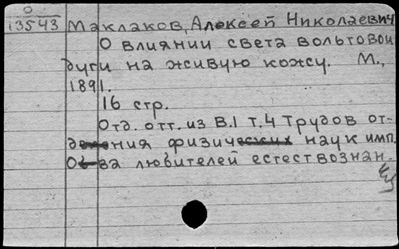 О
13543 Маклаков, Алексей Николаевич
О влиянии света вольтовои
дуги на живую кожу. М.,
1891.
16 стр.
Отд. отт. из В.1 т.4 Трудов от-
деления физических наук имп.
О-ва любителей естествознан.